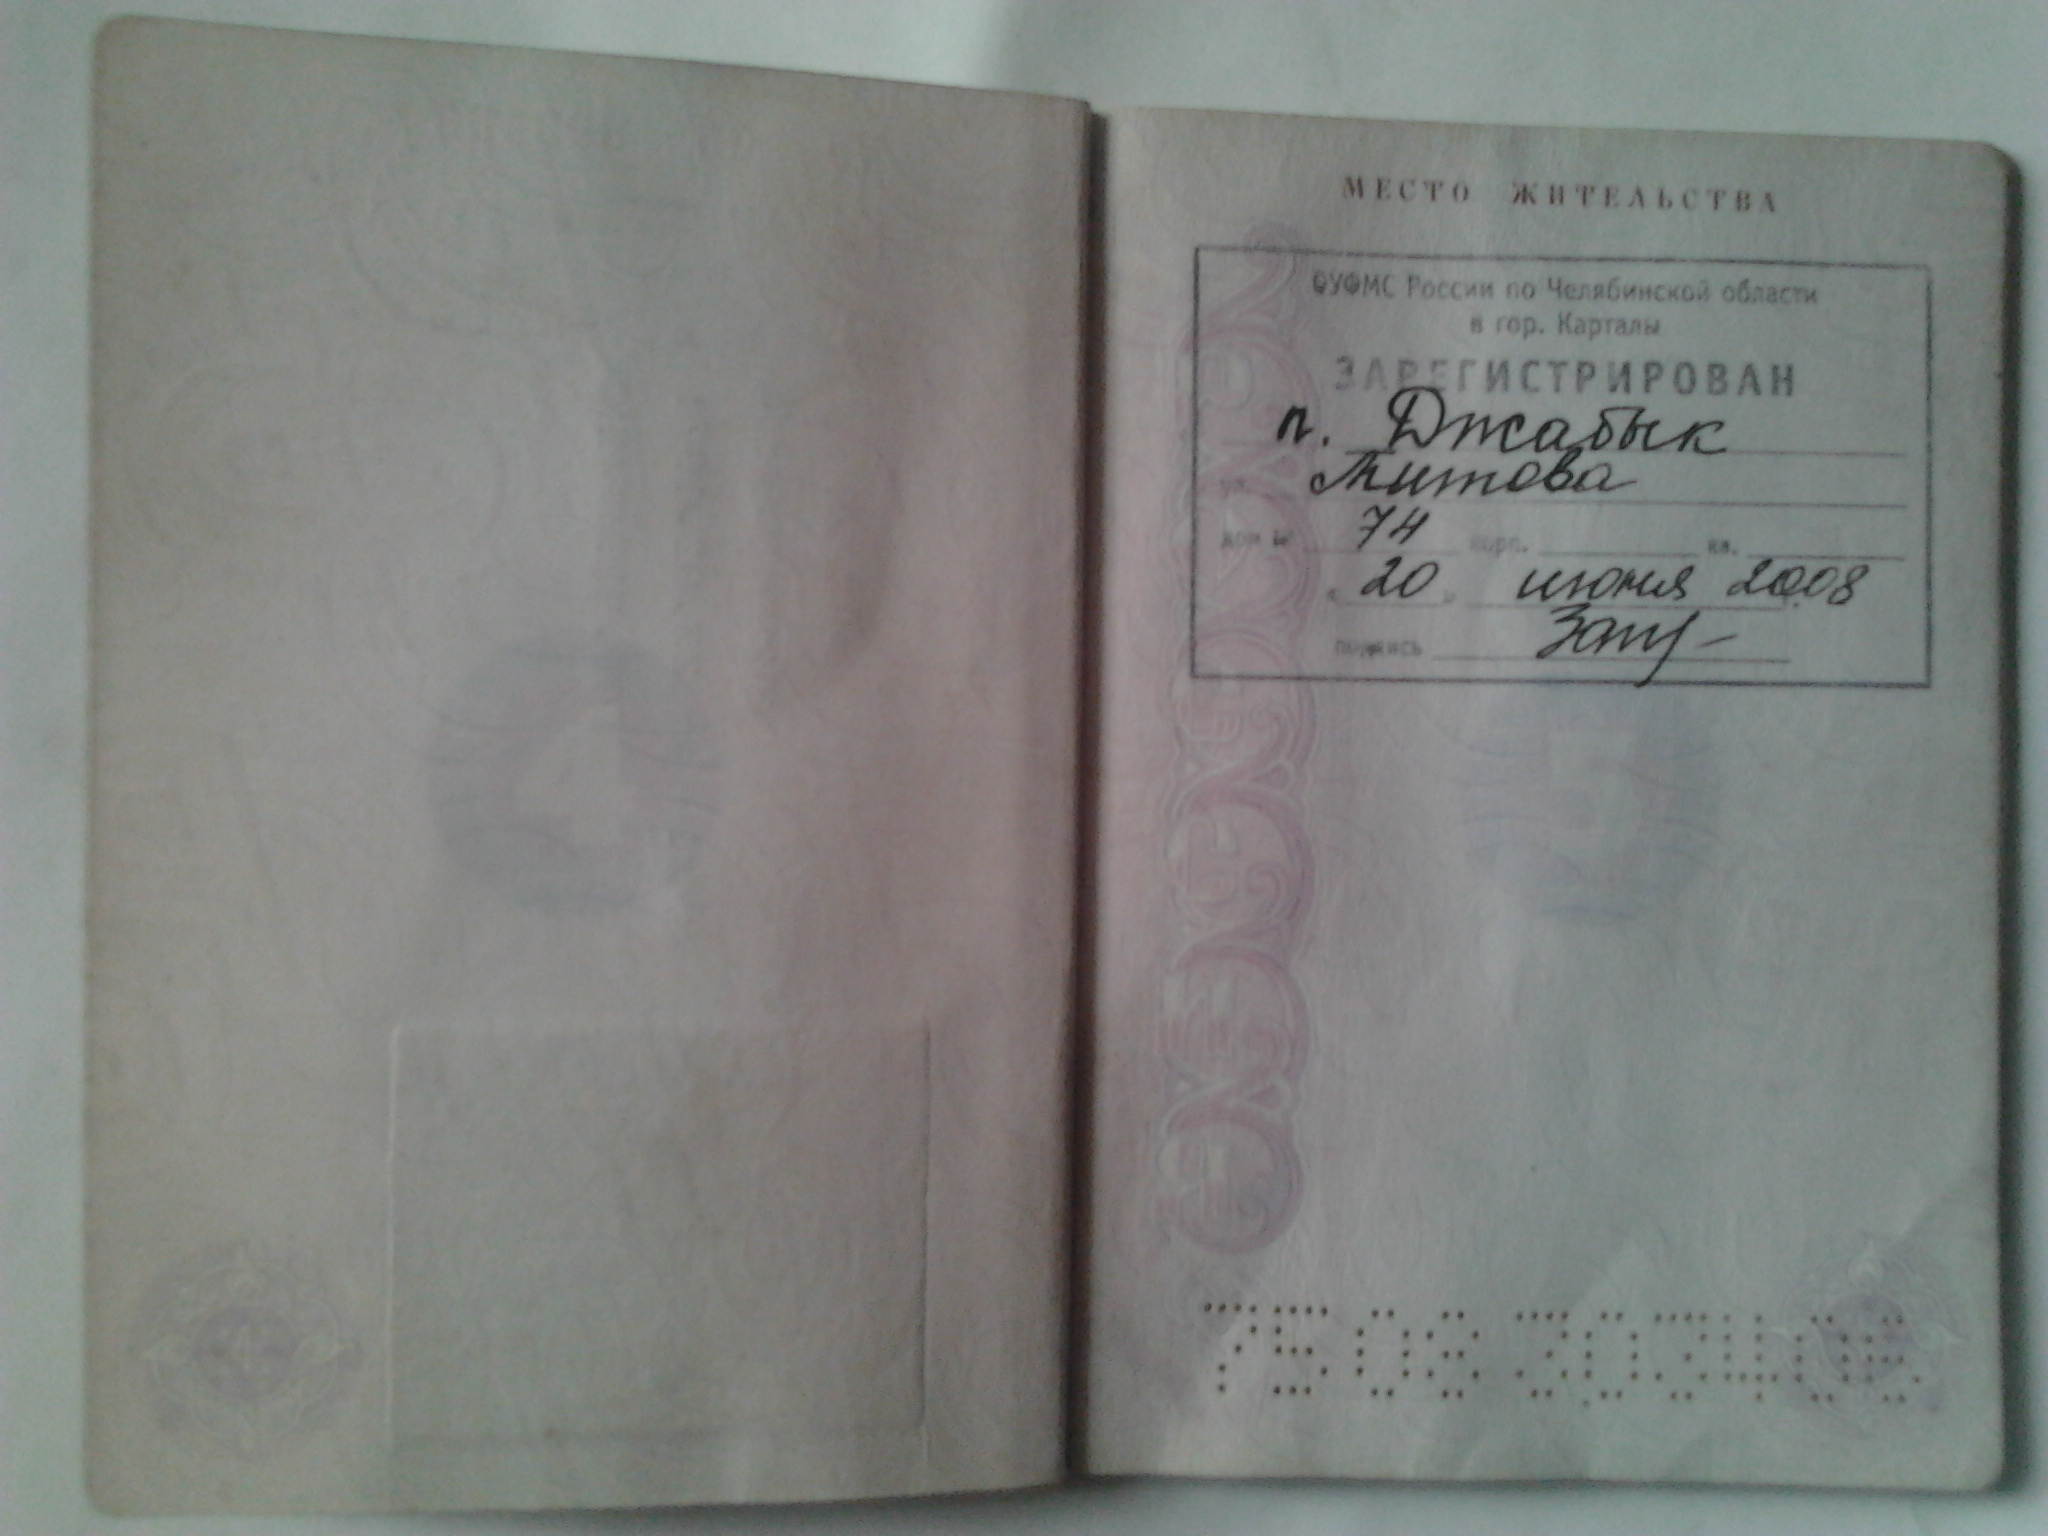 МЕСТО ЖИТЕЛЬСТВА
ОУФМС России по Челябинской области
в гор. Карталы
ЗАРЕГИСТРИРОВАН
п. Джабык
ул. Титова
дом № 74 корп. кв.
" 20 " июня 2008
подпись